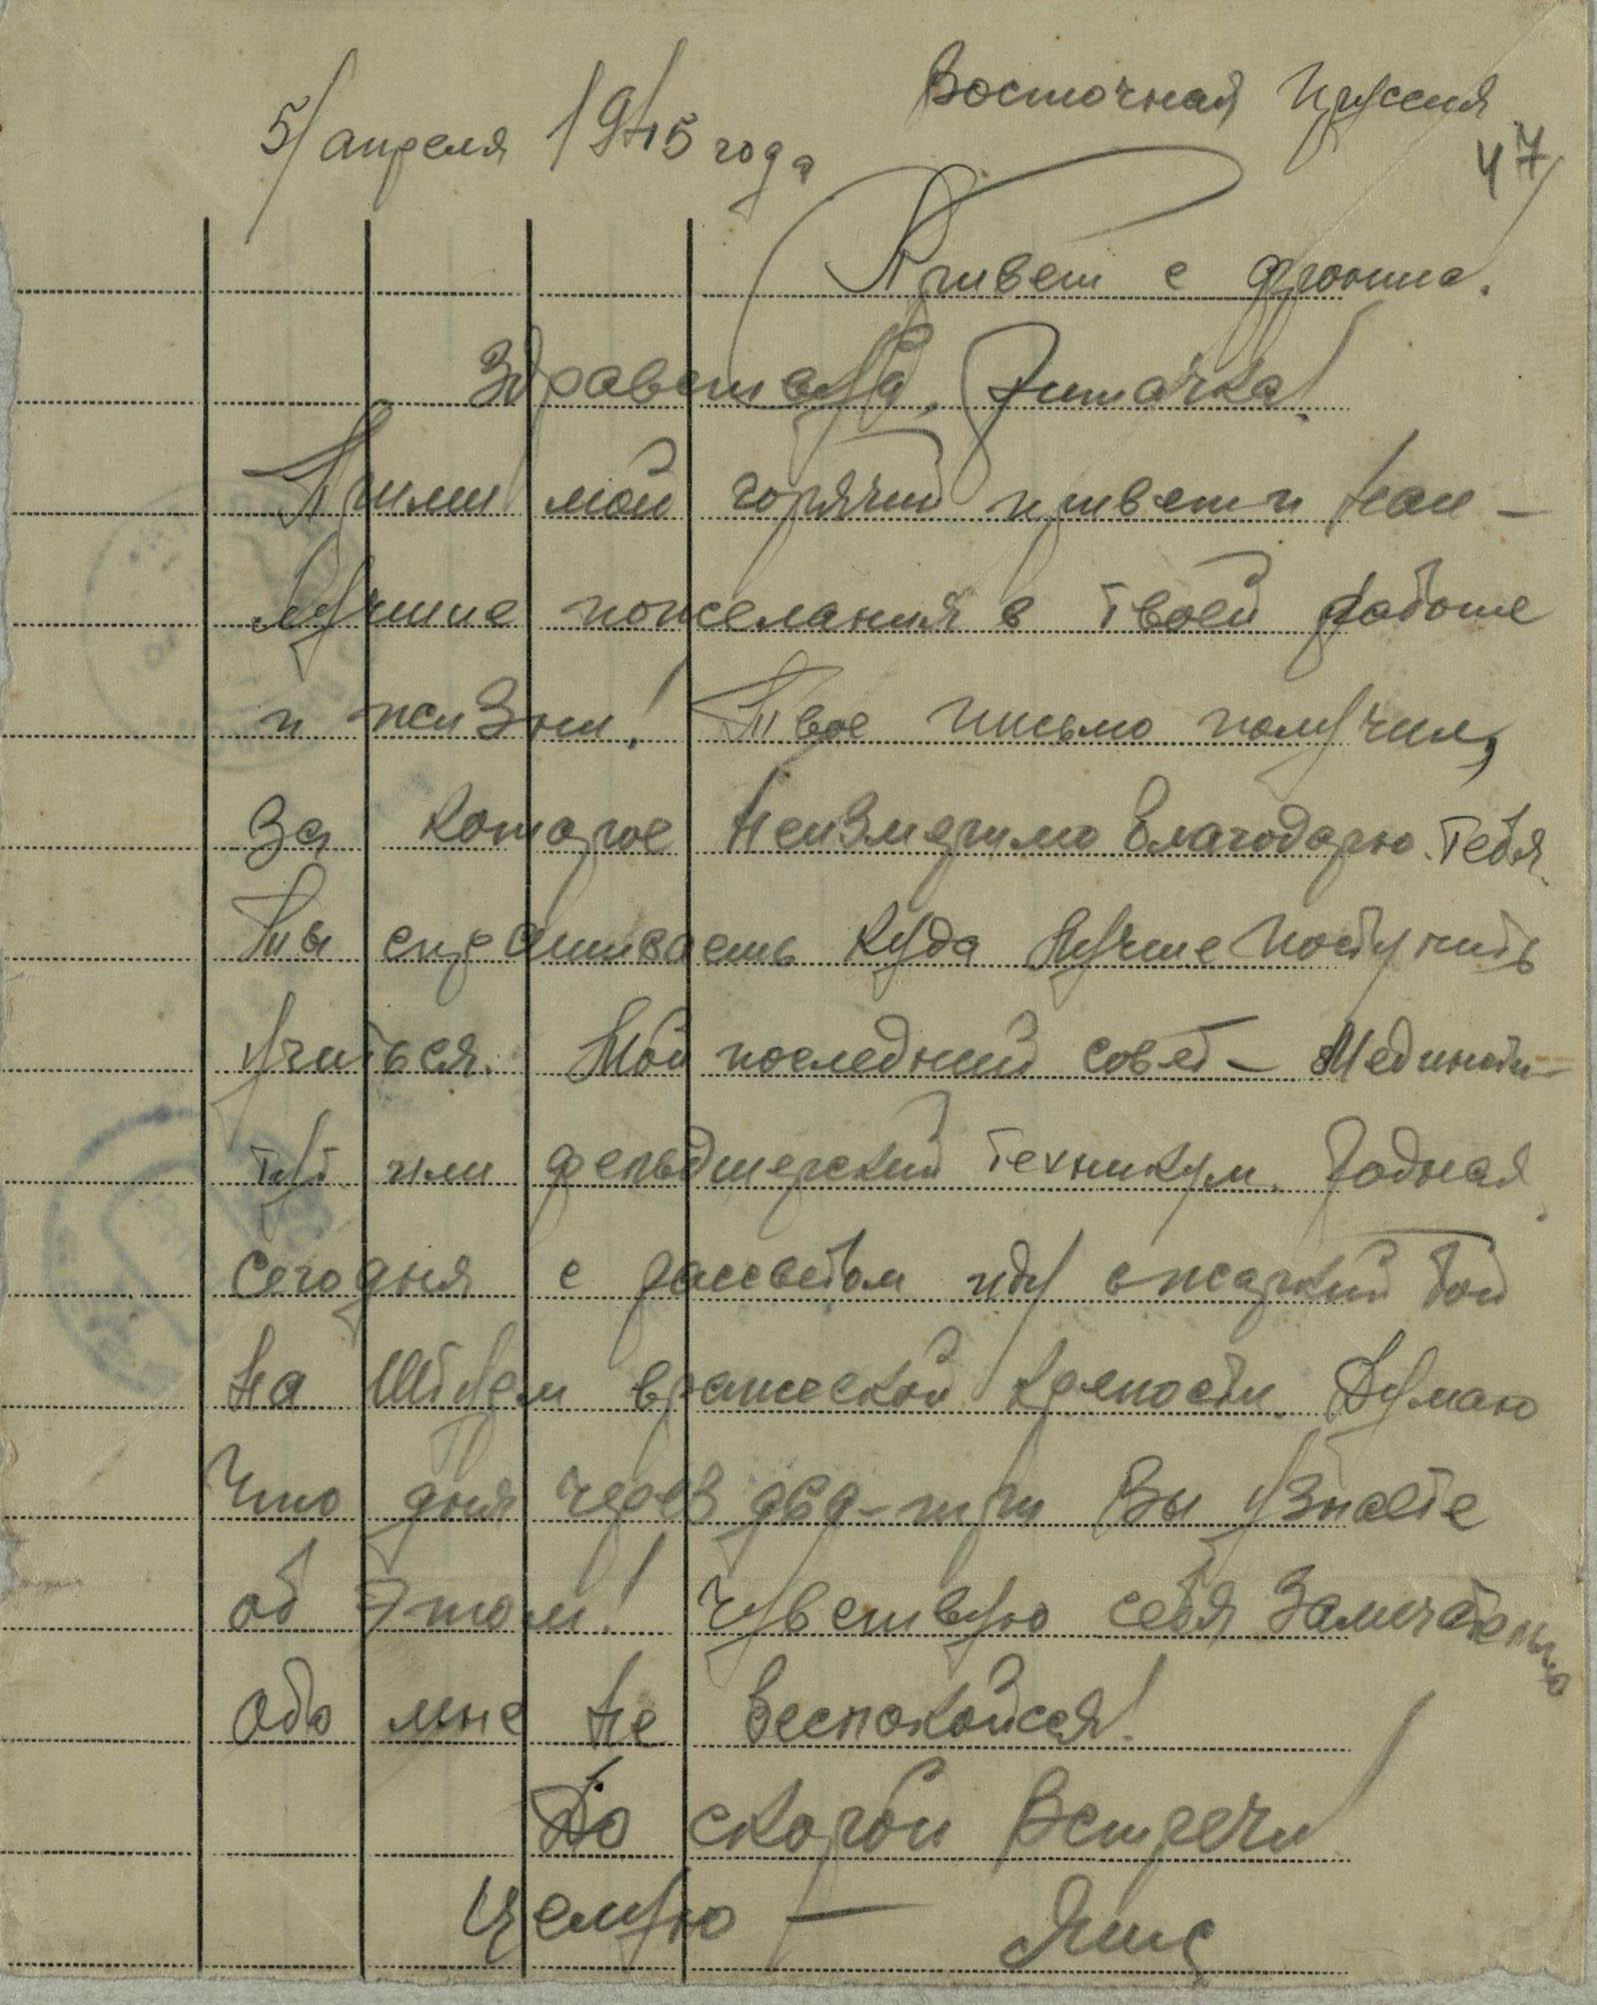 Восточная Пруссия
5/апреля 1945 года
47
Привет с фронта.
Здравствуй, Риточка!
Прими мой горячий привет и наи-
лучшие пожелания в твоей работе
и жизни! Твое письмо получил,
за которое неизмеримо благодарю тебя.
Ты спрашиваешь куда лучше поступить
учиться. Мой последний совет - Мединсти-
тут или фельдшерский техникум. Родная
сегодня с рассветом иду в жаркий бой
на штурм вражеской крепости. Думаю
что дня через два-три Вы узнаете
об этом! Чувствую себя замечательно
обо мне не беспокойся!
До скорой встречи!
Целую —